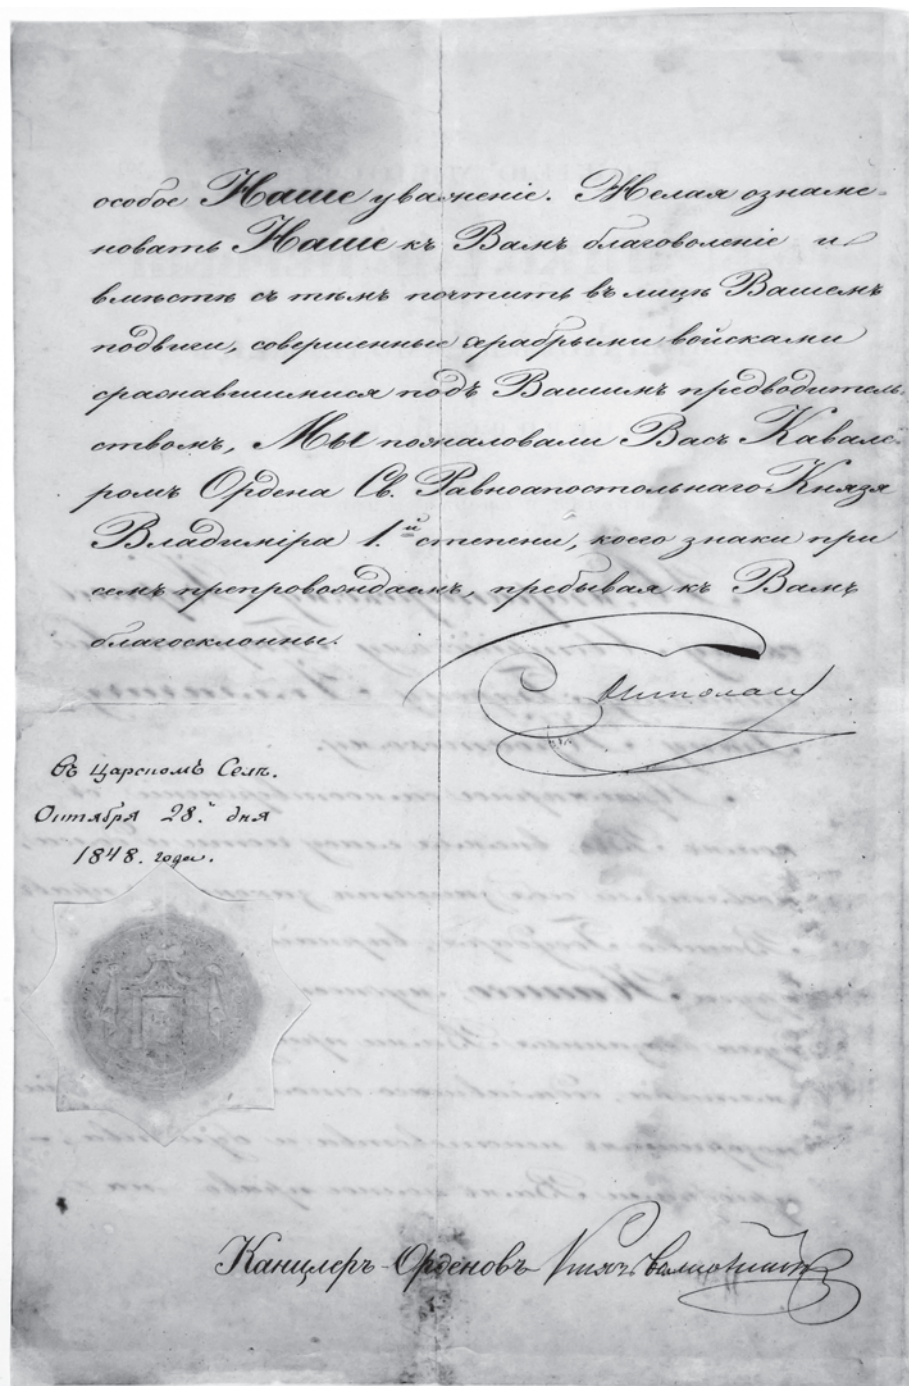 особое Наше уваженіе. Желая ознаме-
новать Наше къ Вамъ благоволеніе и
вмѣстѣ съ тѣмъ почтить въ лицѣ Вашемъ
подвиги, совершенные храбрыми войсками
сражавшимися подъ Вашимъ предводитель-
ствомъ, Мы пожаловали Васъ Кавале-
ромъ Ордена Св. Равноапостольнаго Князя
Владиміра 1.й степени, коего знаки при
семъ препровождаемъ, пребывая къ Вамъ
благосклонны.
Николай
Въ Царскомъ Селѣ.
Октября 28.й дня
1848. года.
Канцлеръ Орденовъ Князь Волконскій